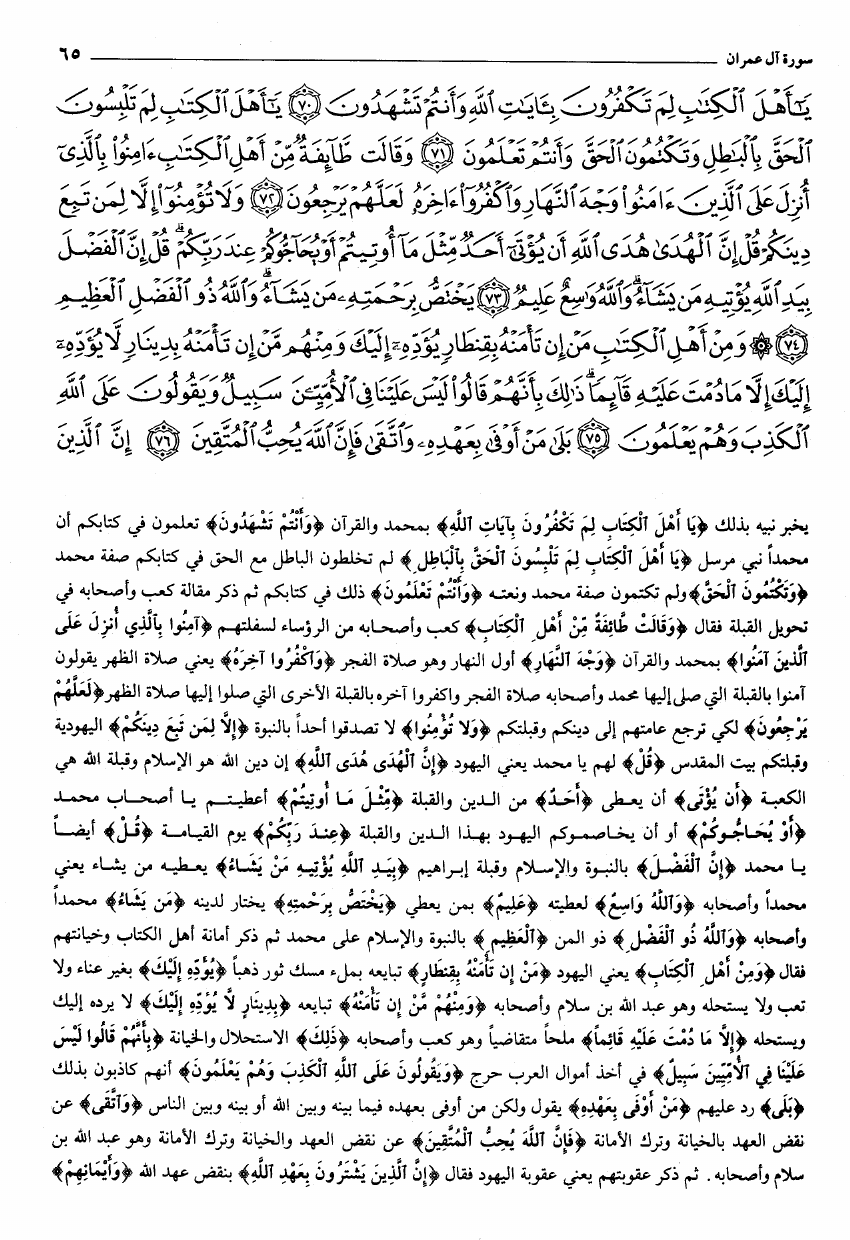 سورة آل عمران ٦٥
يَٰٓأَهۡلَ ٱلۡكِتَٰبِ لِمَ تَكۡفُرُونَ بِـَٔايَٰتِ ٱللَّهِ وَأَنتُمۡ تَشۡهَدُونَ ٧٠ يَٰٓأَهۡلَ ٱلۡكِتَٰبِ لِمَ تَلۡبِسُونَ
ٱلۡحَقَّ بِٱلۡبَٰطِلِ وَتَكۡتُمُونَ ٱلۡحَقَّ وَأَنتُمۡ تَعۡلَمُونَ ٧١ وَقَالَت طَّآئِفَةٞ مِّنۡ أَهۡلِ ٱلۡكِتَٰبِ ءَامِنُواْ بِٱلَّذِيٓ
أُنزِلَ عَلَى ٱلَّذِينَ ءَامَنُواْ وَجۡهَ ٱلنَّهَارِ وَٱكۡفُرُوٓاْ ءَاخِرَهُۥ لَعَلَّهُمۡ يَرۡجِعُونَ ٧٢ وَلَا تُؤۡمِنُوٓاْ إِلَّا لِمَن تَبِعَ
دِينَكُمۡ قُلۡ إِنَّ ٱلۡهُدَىٰ هُدَى ٱللَّهِ أَن يُؤۡتَىٰٓ أَحَدٞ مِّثۡلَ مَآ أُوتِيتُمۡ أَوۡ يُحَآجُّوكُمۡ عِندَ رَبِّكُمۡۗ قُلۡ إِنَّ ٱلۡفَضۡلَ
بِيَدِ ٱللَّهِ يُؤۡتِيهِ مَن يَشَآءُۗ وَٱللَّهُ وَٰسِعٌ عَلِيمٞ ٧٣ يَخۡتَصُّ بِرَحۡمَتِهِۦ مَن يَشَآءُۗ وَٱللَّهُ ذُو ٱلۡفَضۡلِ ٱلۡعَظِيمِ
٧٤ ۞ وَمِنۡ أَهۡلِ ٱلۡكِتَٰبِ مَنۡ إِن تَأۡمَنۡهُ بِقِنطَارٖ يُؤَدِّهِۦٓ إِلَيۡكَ وَمِنۡهُم مَّنۡ إِن تَأۡمَنۡهُ بِدِينَارٖ لَّا يُؤَدِّهِۦٓ
إِلَيۡكَ إِلَّا مَا دُمۡتَ عَلَيۡهِ قَآئِمٗاۗ ذَٰلِكَ بِأَنَّهُمۡ قَالُواْ لَيۡسَ عَلَيۡنَا فِي ٱلۡأُمِّيِّـۧنَ سَبِيلٞ وَيَقُولُونَ عَلَى ٱللَّهِ
ٱلۡكَذِبَ وَهُمۡ يَعۡلَمُونَ ٧٥ بَلَىٰ مَنۡ أَوۡفَىٰ بِعَهۡدِهِۦ وَٱتَّقَىٰ فَإِنَّ ٱللَّهَ يُحِبُّ ٱلۡمُتَّقِينَ ٧٦ إِنَّ ٱلَّذِينَ
يخبر نبيه بذلك ﴿يَا أَهْلَ ٱلْكِتَابِ لِمَ تَكْفُرُونَ بِآيَاتِ ٱللَّهِ﴾ بمحمد والقرآن ﴿وَأَنْتُمْ تَشْهَدُونَ﴾ تعلمون في كتابكم أن
محمداً نبي مرسل ﴿يَا أَهْلَ ٱلْكِتَابِ لِمَ تَلْبِسُونَ ٱلْحَقَّ بِٱلْبَاطِلِ﴾ لم تخلطون الباطل مع الحق في كتابكم صفة محمد
﴿وَتَكْتُمُونَ ٱلْحَقَّ﴾ ولم تكتمون صفة محمد ونعته ﴿وَأَنْتُمْ تَعْلَمُونَ﴾ ذلك في كتابكم ثم ذكر مقالة كعب وأصحابه في
تحويل القبلة فقال ﴿وَقَالَتْ طَّائِفَةٌ مِّنْ أَهْلِ ٱلْكِتَابِ﴾ كعب وأصحابه من الرؤساء لسفلتهم ﴿آمِنُوا بِٱلَّذِي أُنزِلَ عَلَى
ٱلَّذِينَ آمَنُوا﴾ بمحمد والقرآن ﴿وَجْهَ ٱلنَّهَارِ﴾ أول النهار وهو صلاة الفجر ﴿وَٱكْفُرُوا آخِرَهُ﴾ يعني صلاة الظهر يقولون
آمنوا بالقبلة التي صلى إليها محمد وأصحابه صلاة الفجر واكفروا آخره بالقبلة الأخرى التي صلوا إليها صلاة الظهر ﴿لَعَلَّهُمْ
يَرْجِعُونَ﴾ لكي ترجع عامتهم إلى دينكم وقبلتكم ﴿وَلَا تُؤْمِنُوا﴾ لا تصدقوا أحداً بالنبوة ﴿إِلَّا لِمَن تَبِعَ دِينَكُمْ﴾ اليهودية
وقبلتكم بيت المقدس ﴿قُلْ﴾ لهم يا محمد يعني اليهود ﴿إِنَّ ٱلْهُدَى هُدَى ٱللَّهِ﴾ إن دين الله هو الإسلام وقبلة الله هي
الكعبة ﴿أَن يُؤْتَى﴾ أن يعطى ﴿أَحَدٌ﴾ من الدين والقبلة ﴿مِّثْلَ مَا أُوتِيتُمْ﴾ أعطيتم يا أصحاب محمد
﴿أَوْ يُحَاجُّوكُمْ﴾ أو أن يخاصموكم اليهود بهذا الدين والقبلة ﴿عِندَ رَبِّكُمْ﴾ يوم القيامة ﴿قُلْ﴾ أيضاً
يا محمد ﴿إِنَّ ٱلْفَضْلَ﴾ بالنبوة والإسلام وقبلة إبراهيم ﴿بِيَدِ ٱللَّهِ يُؤْتِيهِ مَنْ يَشَاءُ﴾ يعطيه من يشاء يعني
محمداً وأصحابه ﴿وَٱللَّهُ وَاسِعٌ﴾ لعطيته ﴿عَلِيمٌ﴾ بمن يعطي ﴿يَخْتَصُّ بِرَحْمَتِهِ﴾ يختار لدينه ﴿مَن يَشَاءُ﴾ محمداً
وأصحابه ﴿وَٱللَّهُ ذُو ٱلْفَضْلِ﴾ ذو المن ﴿ٱلْعَظِيمِ﴾ بالنبوة والإسلام على محمد ثم ذكر أمانة أهل الكتاب وخيانتهم
فقال ﴿وَمِنْ أَهْلِ ٱلْكِتَابِ﴾ يعني اليهود ﴿مَنْ إِن تَأْمَنْهُ بِقِنطَارٍ﴾ تبايعه بملء مسك ثور ذهباً ﴿يُؤَدِّهِ إِلَيْكَ﴾ بغير عناء ولا
تعب ولا يستحله وهو عبد الله بن سلام وأصحابه ﴿وَمِنْهُمْ مَّنْ إِن تَأْمَنْهُ﴾ تبايعه ﴿بِدِينَارٍ لَّا يُؤَدِّهِ إِلَيْكَ﴾ لا يرده إليك
ويستحله ﴿إِلَّا مَا دُمْتَ عَلَيْهِ قَائِماً﴾ ملحاً متقاضياً وهو كعب وأصحابه ﴿ذَلِكَ﴾ الاستحلال والخيانة ﴿بِأَنَّهُمْ قَالُوا لَيْسَ
عَلَيْنَا فِي ٱلْأُمِّيِّينَ سَبِيلٌ﴾ في أخذ أموال العرب حرج ﴿وَيَقُولُونَ عَلَى ٱللَّهِ ٱلْكَذِبَ وَهُمْ يَعْلَمُونَ﴾ أنهم كاذبون بذلك
﴿بَلَى﴾ رد عليهم ﴿مَنْ أَوْفَى بِعَهْدِهِ﴾ يقول ولكن من أوفى بعهده فيما بينه وبين الله أو بينه وبين الناس ﴿وَٱتَّقَى﴾ عن
نقض العهد بالخيانة وترك الأمانة ﴿فَإِنَّ ٱللَّهَ يُحِبُّ ٱلْمُتَّقِينَ﴾ عن نقض العهد والخيانة وترك الأمانة وهو عبد الله بن
سلام وأصحابه. ثم ذكر عقوبتهم يعني عقوبة اليهود فقال ﴿إِنَّ ٱلَّذِينَ يَشْتَرُونَ بِعَهْدِ ٱللَّهِ﴾ بنقض عهد الله ﴿وَأَيْمَانِهِمْ﴾